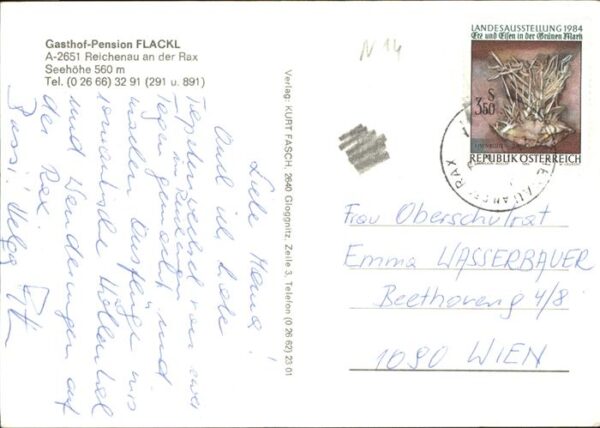 Gasthof-Pension FLACKL
A-2651 Reichenau an der Rax
Seehöhe 560 m
Tel. (0 26 66) 32 91 (291 u. 891)
Liebe Mama!
Auch ich habe
Tapetenwechsel von zwei
Tagen gemacht und
machen Ausflüge ins
romantische Höllental
und Wanderungen auf
der Rax.
Bussi! Helga
Verlag: KURT FASCH, 2640 Gloggnitz, Zeile 3, Telefon (0 26 62) 23 01
N 14
LANDESAUSSTELLUNG 1984
Erz und Eisen in der Grünen Mark
S
3.50
REPUBLIK ÖSTERREICH
Frau Oberschulrat
Emma WASSERBAUER
Beethoveng 4/8
1090 WIEN